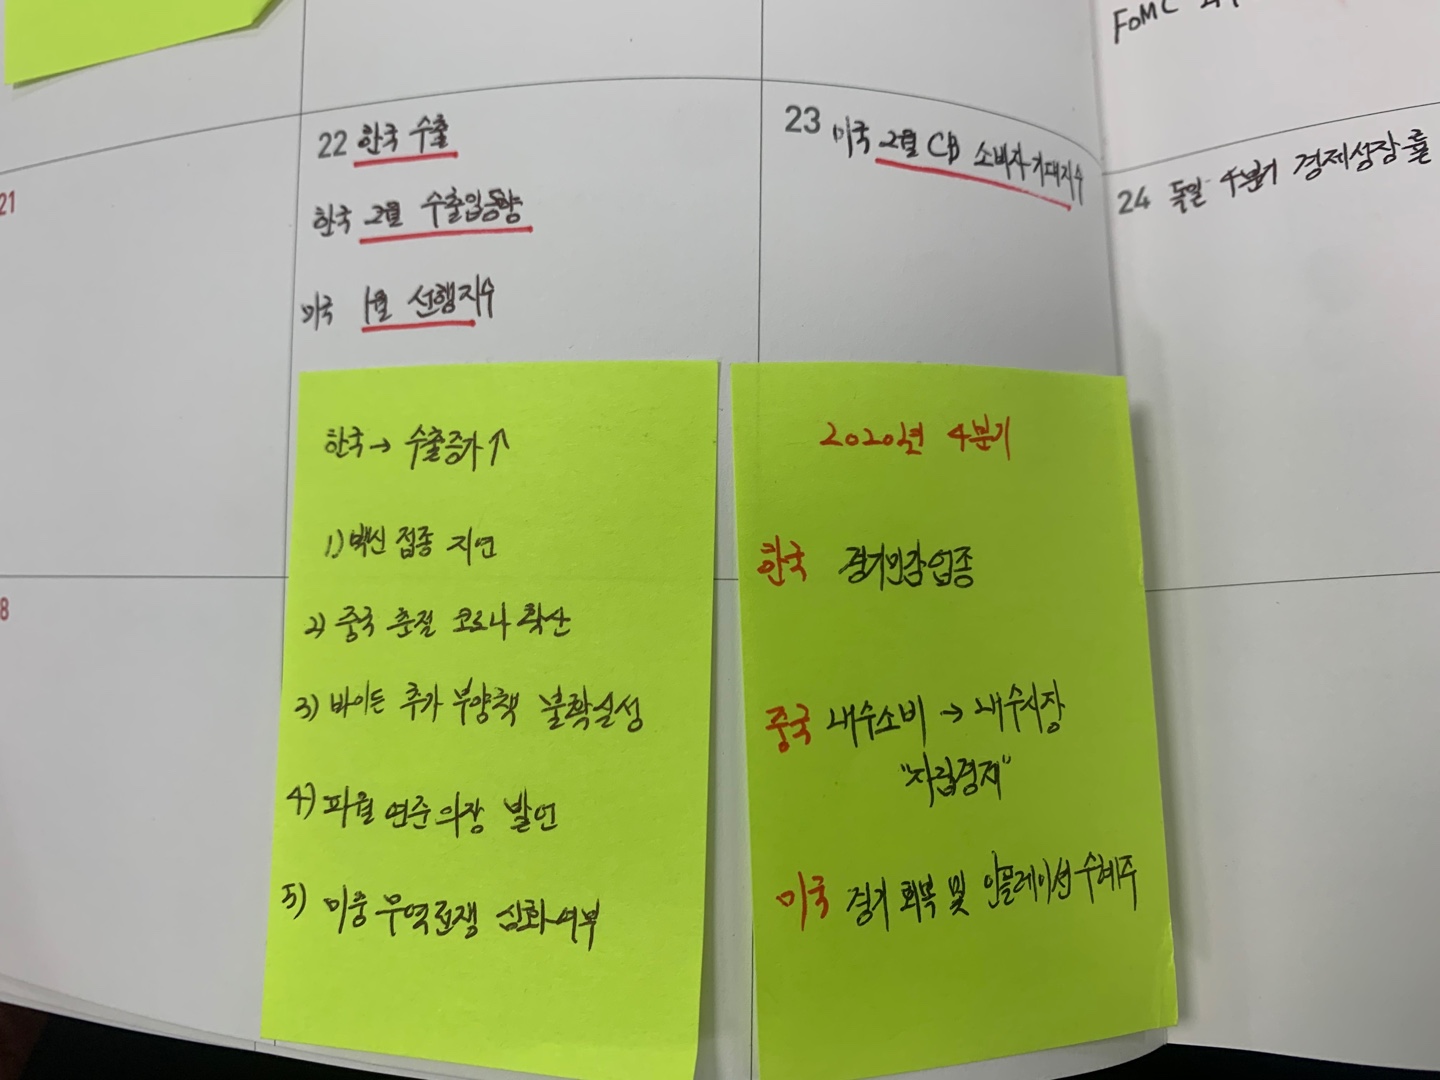 FOMC
21
22 한국 수출
한국 2월 수출입동향
미국 1월 선행지수
23 미국 2월 CB 소비자기대지수
24 독일 4분기 경제성장률
한국 → 수출증가 ↑
1) 백신 접종 지연
2) 중국 춘절 코로나 확산
3) 바이든 추가 부양책 불확실성
4) 파월 연준의장 발언
5) 미중 무역전쟁 심화여부
2020년 4분기
한국 경기민감업종
중국 내수소비 → 내수시장
"자립경제"
미국 경기 회복 및 인플레이션 수혜주
8